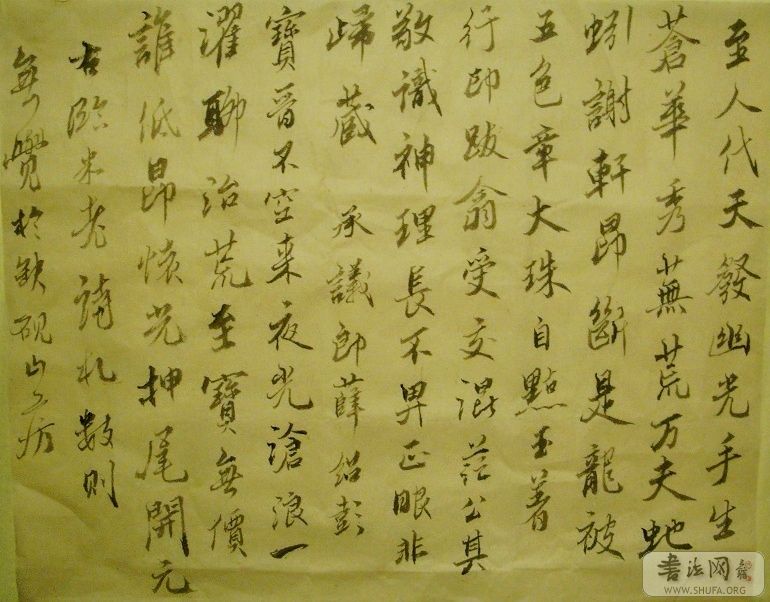 至人代天發幽光手生
蒼華秀蕪荒万夫虵
蚓謝軒昂斷是龍被
五色章大珠自點玉著
行印跋翕受交混茫公其
敬識神理長不畀正眼非
歸藏 承議郎薛紹彭
寶晉不空来夜光滄浪一
濯聊治荒至寶無價
誰低昂懐光押尾開元
右臨米老諸札數則
無覺於缺硯山房
書法网
WWW.SHUFA.ORG